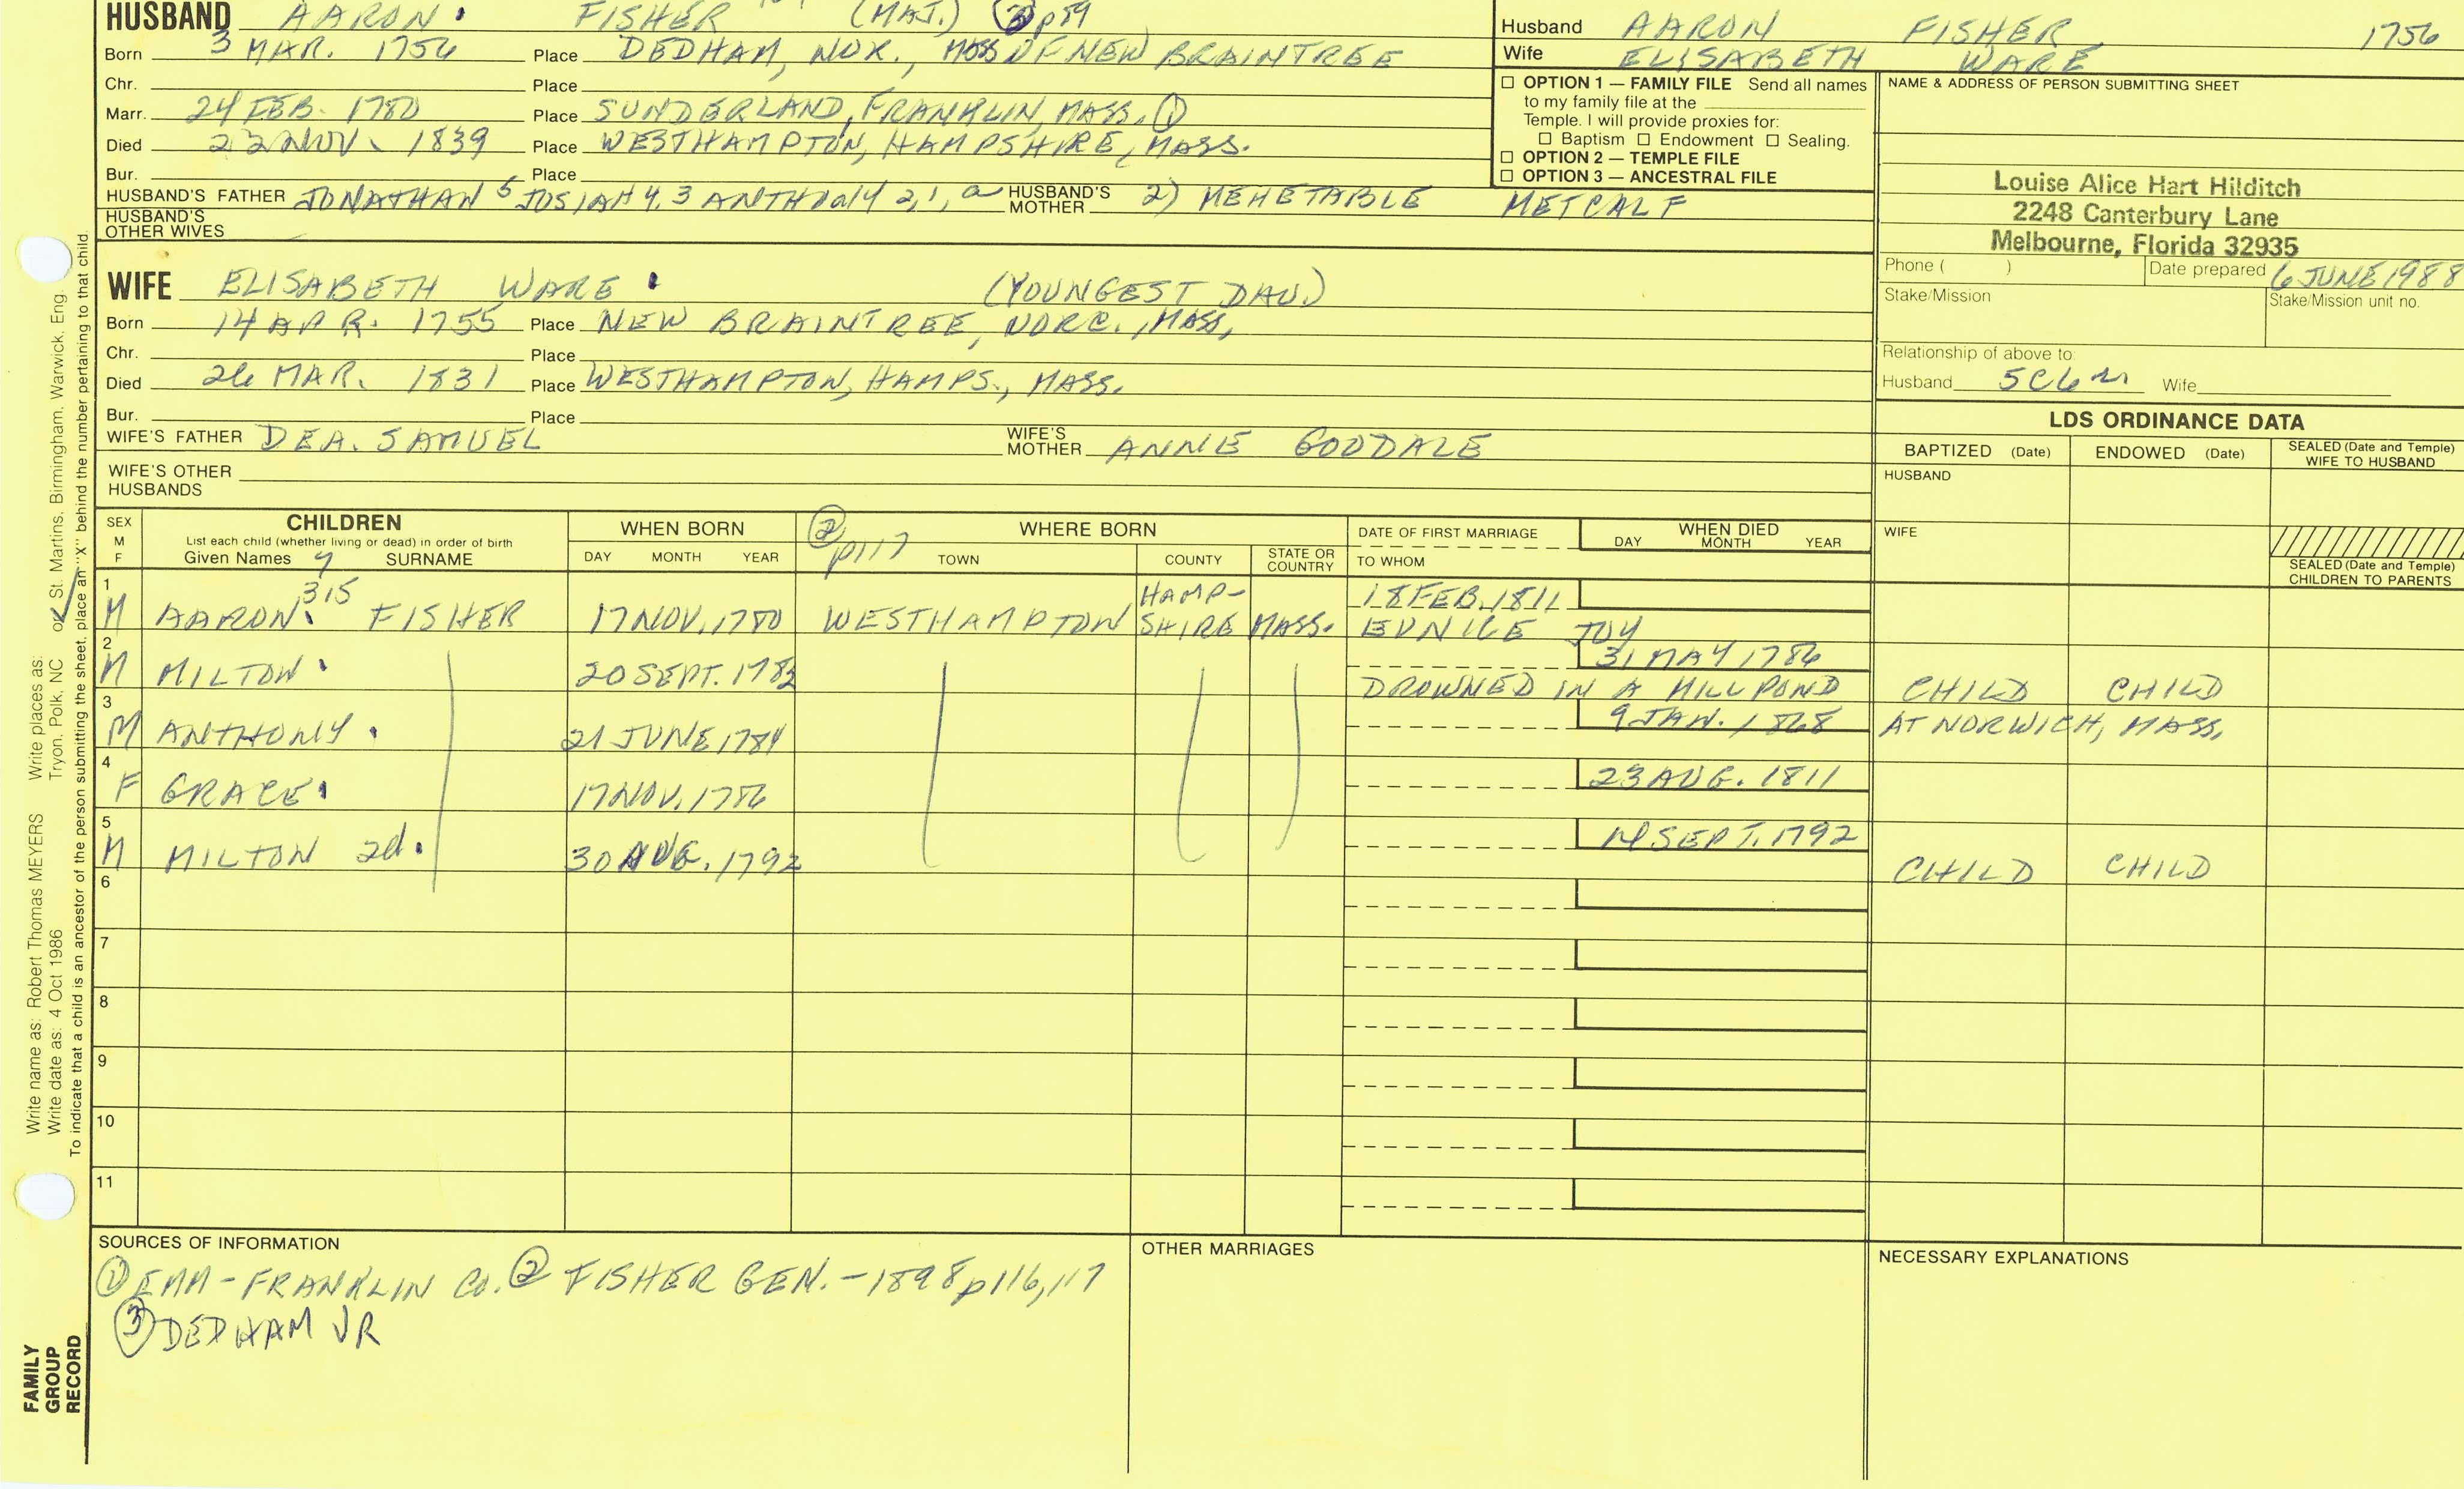 HUSBAND AARON. FISHER (MAJ.) ③ p59
Born 3 MAR. 1756 Place DEDHAM, NOR., MASS OF NEW BRAINTREE
Chr. Place
Marr. 24 FEB. 1780 Place SUNDERLAND, FRANKLIN, MASS. ①
Died 22 NOV. 1839 Place WESTHAMPTON, HAMPSHIRE, MASS.
Bur. Place
HUSBAND'S FATHER JONATHAN 5 JOSIAH 4, 3 ANTHONY 2, 1, a HUSBAND'S MOTHER 2) MEHETABLE METCALF
HUSBAND'S OTHER WIVES
Husband AARON FISHER 1756
Wife ELISABETH WARE
☐ OPTION 1 — FAMILY FILE Send all names
to my family file at the
Temple. I will provide proxies for:
☐ Baptism ☐ Endowment ☐ Sealing.
☐ OPTION 2 — TEMPLE FILE
☐ OPTION 3 — ANCESTRAL FILE
NAME & ADDRESS OF PERSON SUBMITTING SHEET
Louise Alice Hart Hilditch
2248 Canterbury Lane
Melbourne, Florida 32935
Phone ( ) Date prepared 6 JUNE 1988
Stake/Mission Stake/Mission unit no.
Relationship of above to:
Husband 5C6R Wife
WIFE ELISABETH WARE. (YOUNGEST DAU.)
Born 14 APR. 1755 Place NEW BRAINTREE, WORC., MASS.
Chr. Place
Died 26 MAR. 1831 Place WESTHAMPTON, HAMPS., MASS.
Bur. Place
WIFE'S FATHER DEA. SAMUEL WIFE'S MOTHER ANNIE GOODALE
WIFE'S OTHER HUSBANDS
LDS ORDINANCE DATA
BAPTIZED (Date) ENDOWED (Date) SEALED (Date and Temple) WIFE TO HUSBAND
HUSBAND
WIFE
SEALED (Date and Temple) CHILDREN TO PARENTS
SEX M F
CHILDREN
List each child (whether living or dead) in order of birth
Given Names SURNAME
WHEN BORN
DAY MONTH YEAR
② p117
WHERE BORN
TOWN COUNTY STATE OR COUNTRY
DATE OF FIRST MARRIAGE
TO WHOM
WHEN DIED
DAY MONTH YEAR
1 M AARON. 315 FISHER 17 NOV. 1780 WESTHAMPTON HAMP-SHIRE MASS. 18 FEB. 1811
EUNICE JOY
2 M MILTON. 20 SEPT. 1782 31 MAY 1786
DROWNED IN A MILL POND CHILD CHILD
3 M ANTHONY. 21 JUNE 1784 9 JAN. 1868 AT NORWICH, MASS.
4 F GRACE. 17 NOV. 1786 23 AUG. 1811
5 M MILTON 2d. 30 AUG. 1792 14 SEPT. 1792
CHILD CHILD
6
7
8
9
10
11
SOURCES OF INFORMATION
① EMM-FRANKLIN CO. ② FISHER GEN.-1898 p116,117
③ DEDHAM VR
OTHER MARRIAGES
NECESSARY EXPLANATIONS
Write name as: Robert Thomas MEYERS Write places as: or St. Martins, Birmingham, Warwick, Eng.
Write date as: 4 Oct 1986 Tryon, Polk, NC
To indicate that a child is an ancestor of the person submitting the sheet, place an "X" behind the number pertaining to that child.
FAMILY
GROUP
RECORD